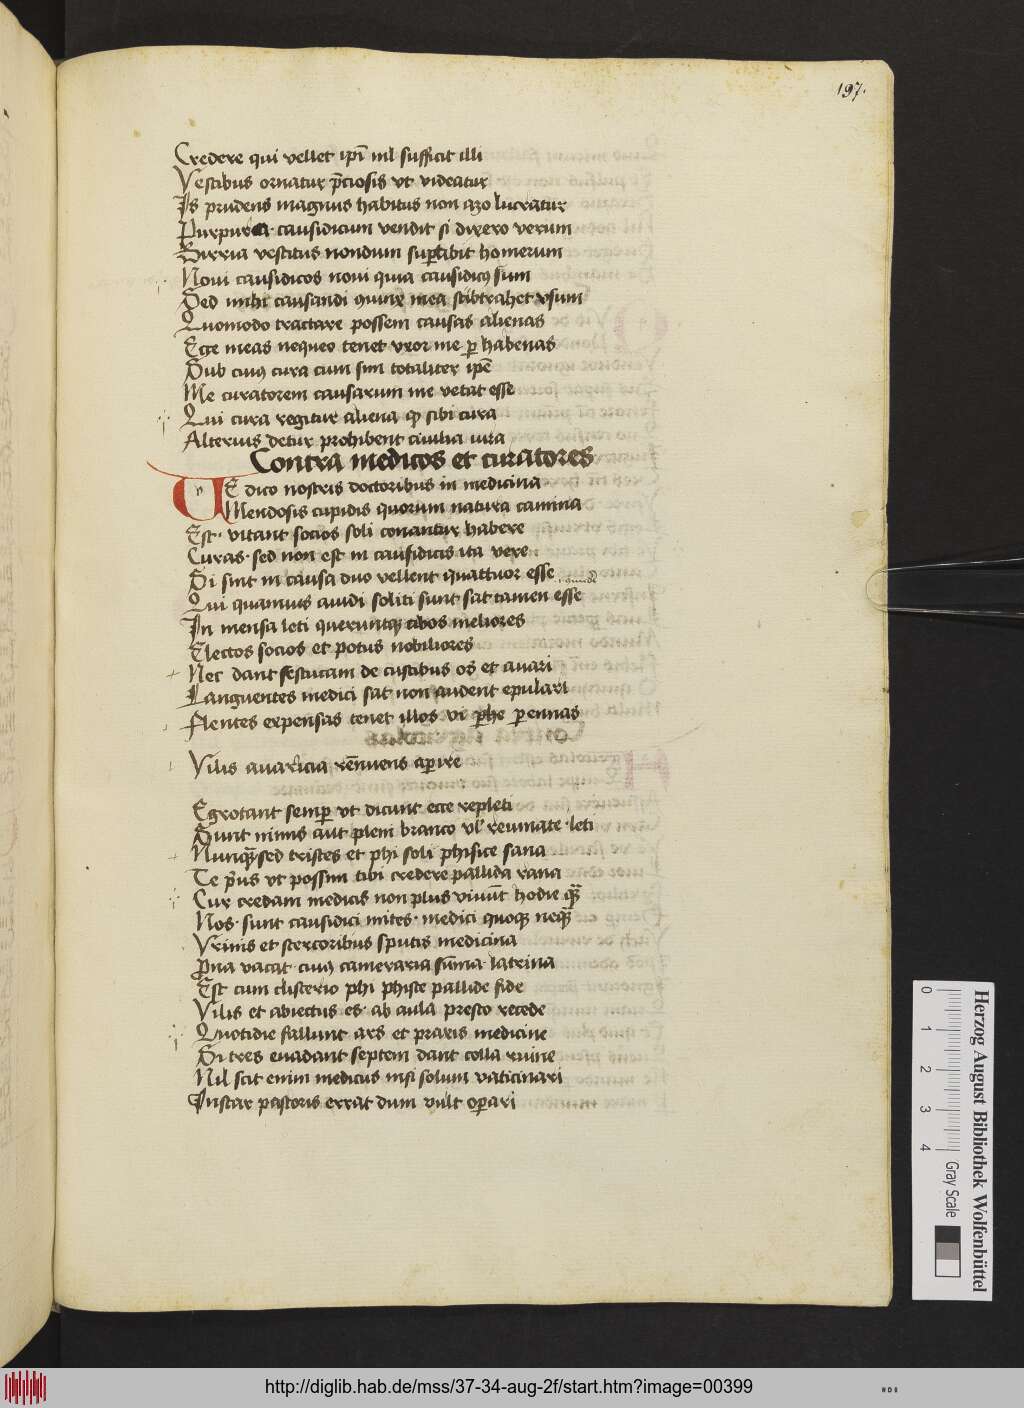 197.
Credere qui vellet ipi nil sufficit illi
Vestibus ornatur pciosis vt videatur
Is prudens magnus habitus non a3o lucratur
Purpura causidicum vendit si dixero verum
Birria vestitus nondum supabit homerum
Noui causidicos noui quia causidicus sum
Sed michi causandi mea subtrahet vsum
Quomodo tractare possem causas alienas
Ecce meas nequeo tenet vxor me p habenas
Sub cuius cura cum sim totaliter ipe
Me curatorem causarum me vetat esse
Qui cura regitur aliena qp sibi cura
Alterius detur prohibent ciuilia iura
Contra medicos et curatores
E dico nostris doctoribus in medicina
Mendosis cupidis quorum natura camina
Est vitant socios soli conantur habere
Curas sed non est in causidicis ita vere
Si sint in causa duo vellent quattuor esse
Qui quamuis auidi soliti sunt sat tamen esse
In mensa leti querunt cibos meliores
Electos socios et potus nobiliores
Nec dant festucam de custibus os et auari
Languentes medici sat non audent epulari
Flentes expensas tenet illos vi phe pennas
Vilis auaricia rennuens apire
Egrotant semp vt dicunt ecce repleti
Sunt nimis aut pleni branco vl reumate leti
Nunq sed tristes et phi soli phisice sana
Te pus vt possim tibi credere pallida rana
Cur credam medicis non plus viuut hodie qq
Nos sunt causidici mites medici quoq neq
Vrinis et stercoribus sputis medicina
Pna vacat cuius cameraria suma latrina
Est cum clisterio phi phiste pallide fide
Vilis et abiectus es ab aula presto recede
Quotidie fallunt ars et praxis medicine
Si tres euadant septem dant colla ruine
Nil scit enim medicus nisi solum vaticinari
Instar pastoris errat dum vult opari
Herzog August Bibliothek Wolfenbüttel
0 1 2 3 4 Gray Scale
http://diglib.hab.de/mss/37-34-aug-2f/start.htm?image=00399